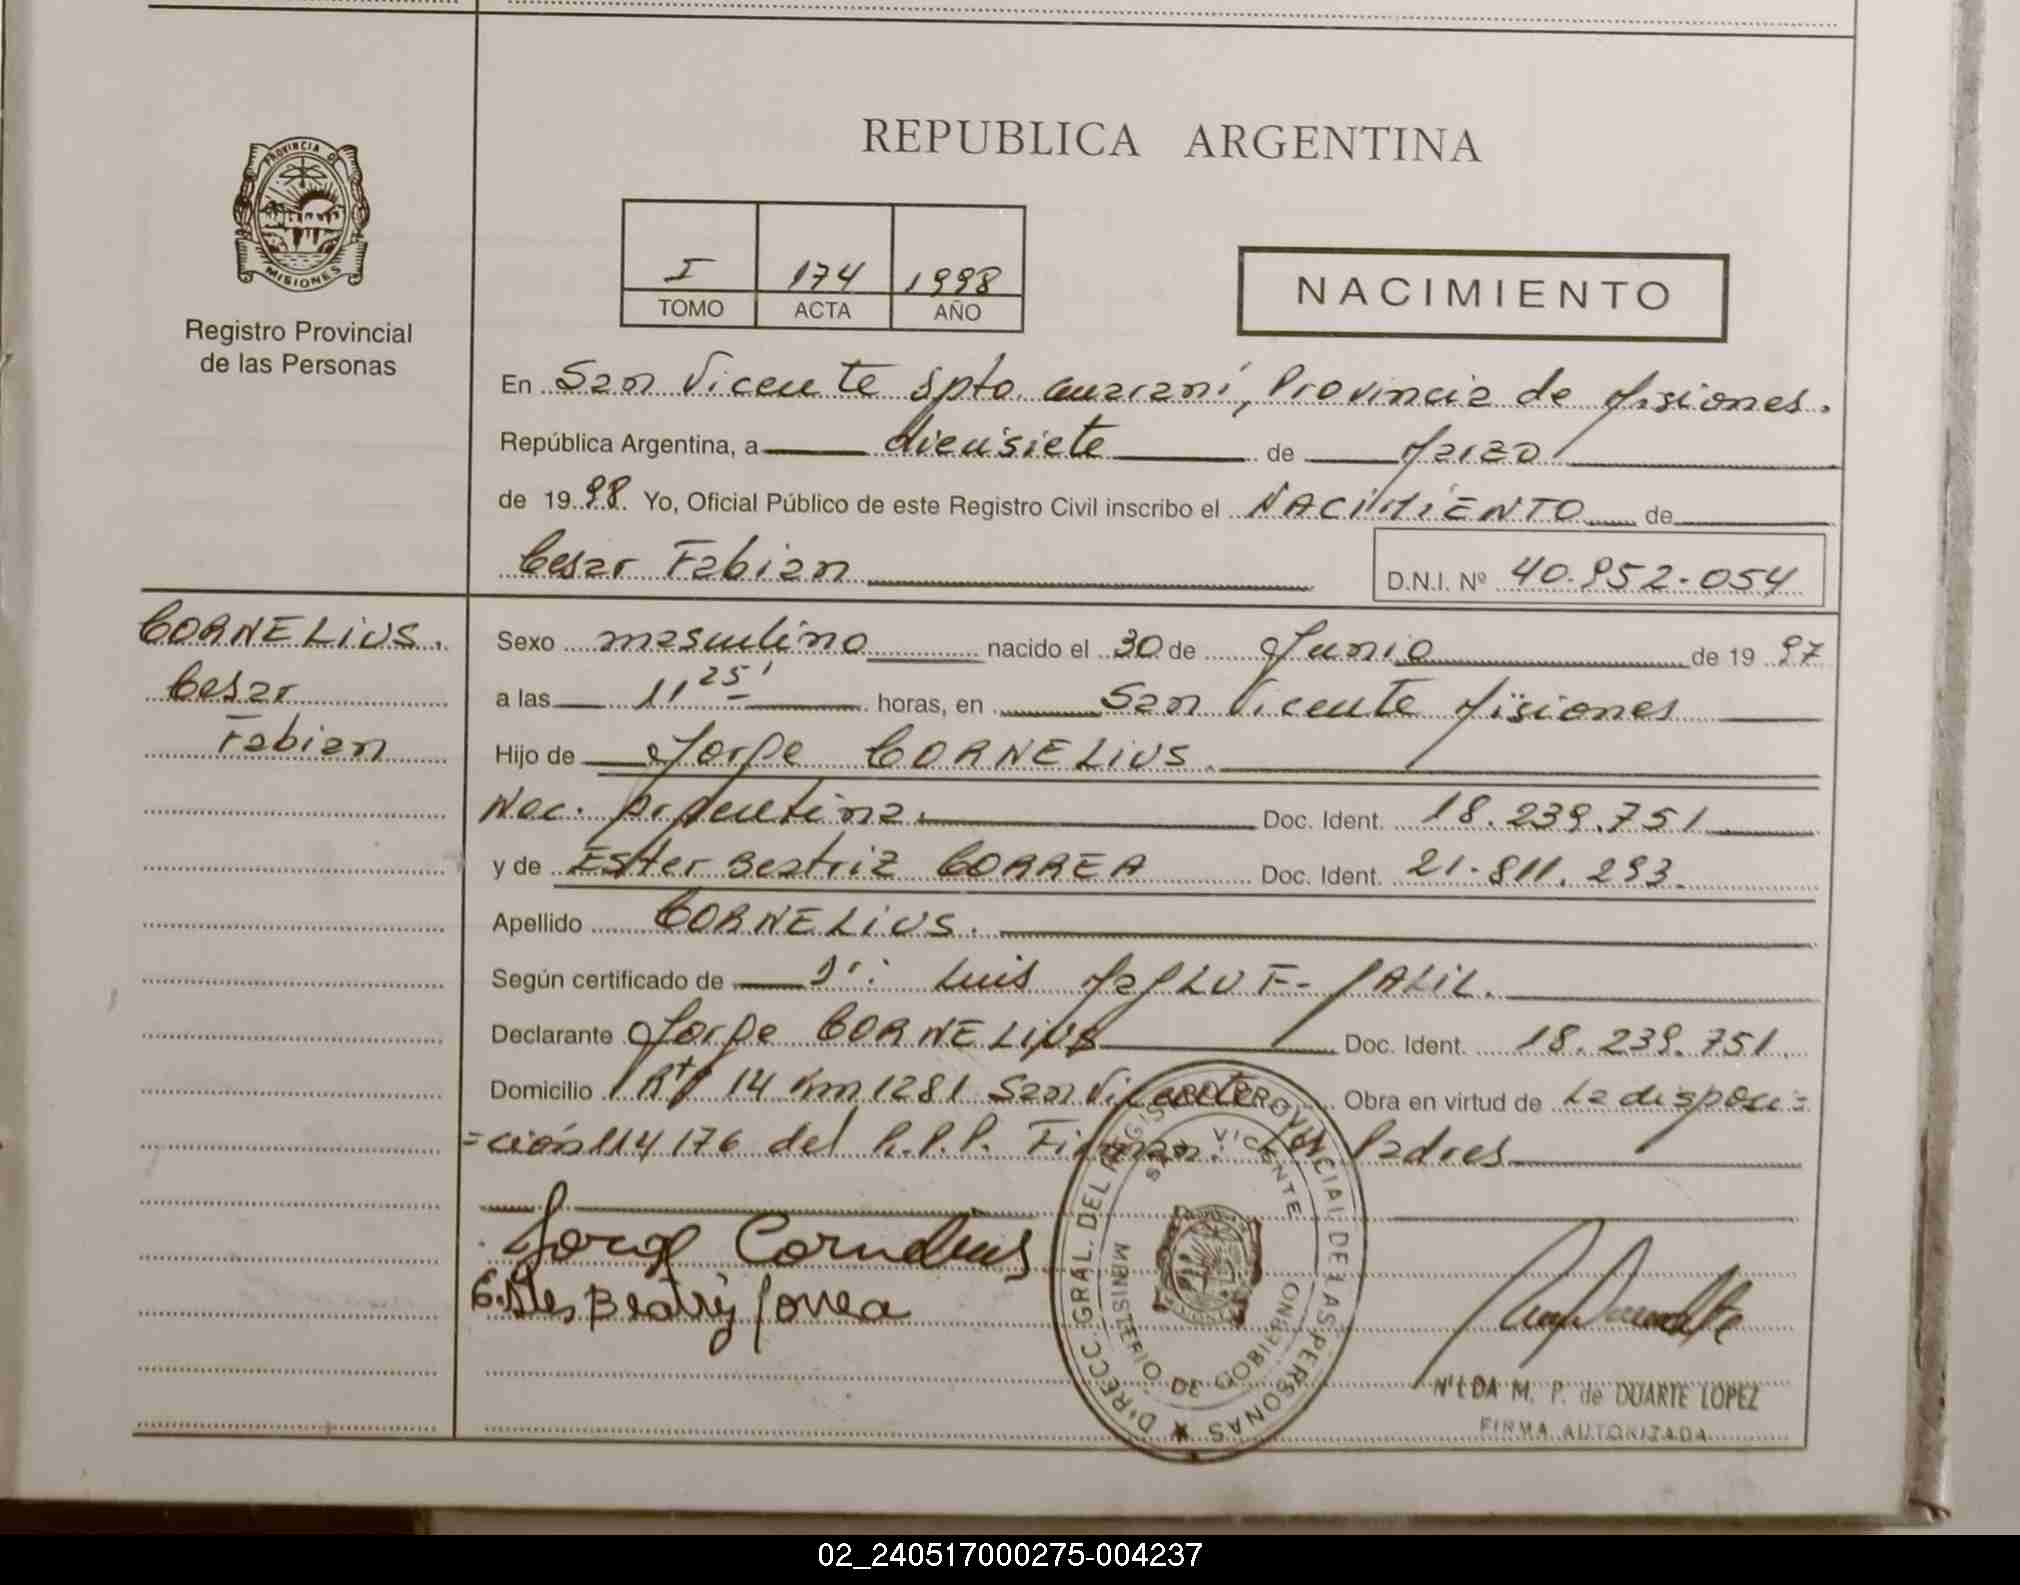 REPUBLICA ARGENTINA
PROVINCIA D
MISIONES
Registro Provincial
de las Personas
I 174 1998
TOMO ACTA AÑO
NACIMIENTO
En San Vicente Dpto. Guaraní, Provincia de Misiones.
República Argentina, a diecisiete de Marzo
de 1998. Yo, Oficial Público de este Registro Civil inscribo el NACIMIENTO de
Cesar Fabian D.N.I. Nº 40.952.054
CORNELIUS.
Cesar
Fabian
Sexo masculino nacido el 30 de Junio de 1997
a las 11 25' horas, en San Vicente Misiones
Hijo de Jorge CORNELIUS.
Nac. Argentina. Doc. Ident. 18.239.751
y de Ester Beatriz CORREA Doc. Ident. 21.811.293.
Apellido CORNELIUS.
Según certificado de Dr: Luis MAGLUF-JALIL.
Declarante Jorge CORNELIUS Doc. Ident. 18.239.751.
Domicilio Rta 14 Km 1281 San Vicente Obra en virtud de La disposi=
=ción 114/76 del R.P.P. Firman: Los Padres
Jorge Cornelius
Ester Beatriz Correa
DIRECC. GRAL. DEL REGISTRO PROVINCIAL DE LAS PERSONAS
SAN VICENTE
MINISTERIO DE GOBIERNO
M. P. de DUARTE LOPEZ
FIRMA AUTORIZADA
02_240517000275-004237